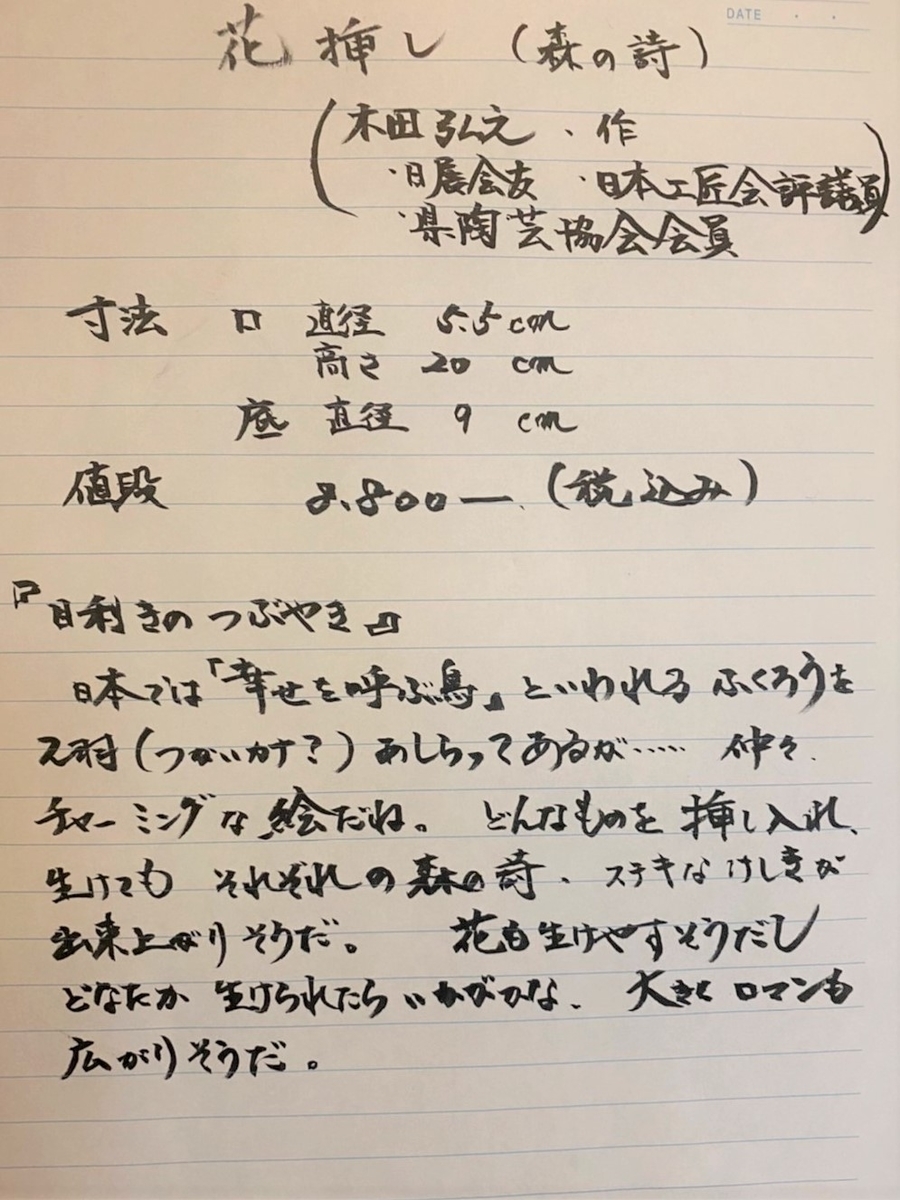 DATE ・ ・
花挿し (森の詩)
(木田弘之・作
・日展会友 ・日本工匠会評議員)
・県陶芸協会会員
寸法 口 直径 5.5cm
高さ 20 cm
底 直径 9 cm
値段 8.800ー.(税込み)
『目利きのつぶやき』
日本では「幸せを呼ぶ鳥」といわれるふくろうを
2羽(つがいカナ?)あしらってあるが…… 仲々.
チャーミングな絵だね。 どんなものを挿し入れ、
生けても それぞれの森の詩、ステキなけしきが
出来上がりそうだ。 花も生けやすそうだし
どなたか 生けられたらいかがかな、 大きくロマンも
広がりそうだ。